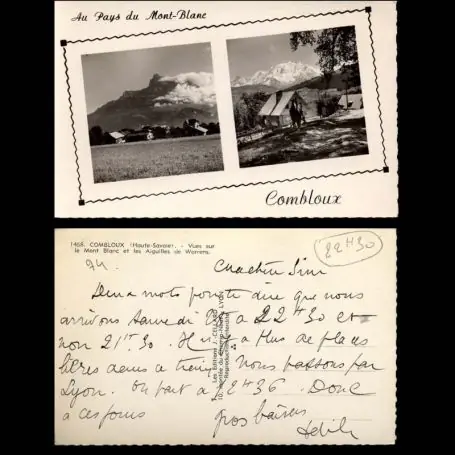 Au Pays du Mont-Blanc
Combloux
1468. COMBLOUX (Haute-Savoie). - Vues sur
le Mont Blanc et les Aiguilles de Warrens.
22H30
74.
Deux mots pour te dire que nous
arrivons samedi à 22H30 et
non 21H30. Il n'y a plus de places
libres dans le train. Nous passons par
Lyon. On part à 12H36. Donc
à ces jours
gros baisers
Les Editions J. CELLARD
LYON
Reproduction interdite